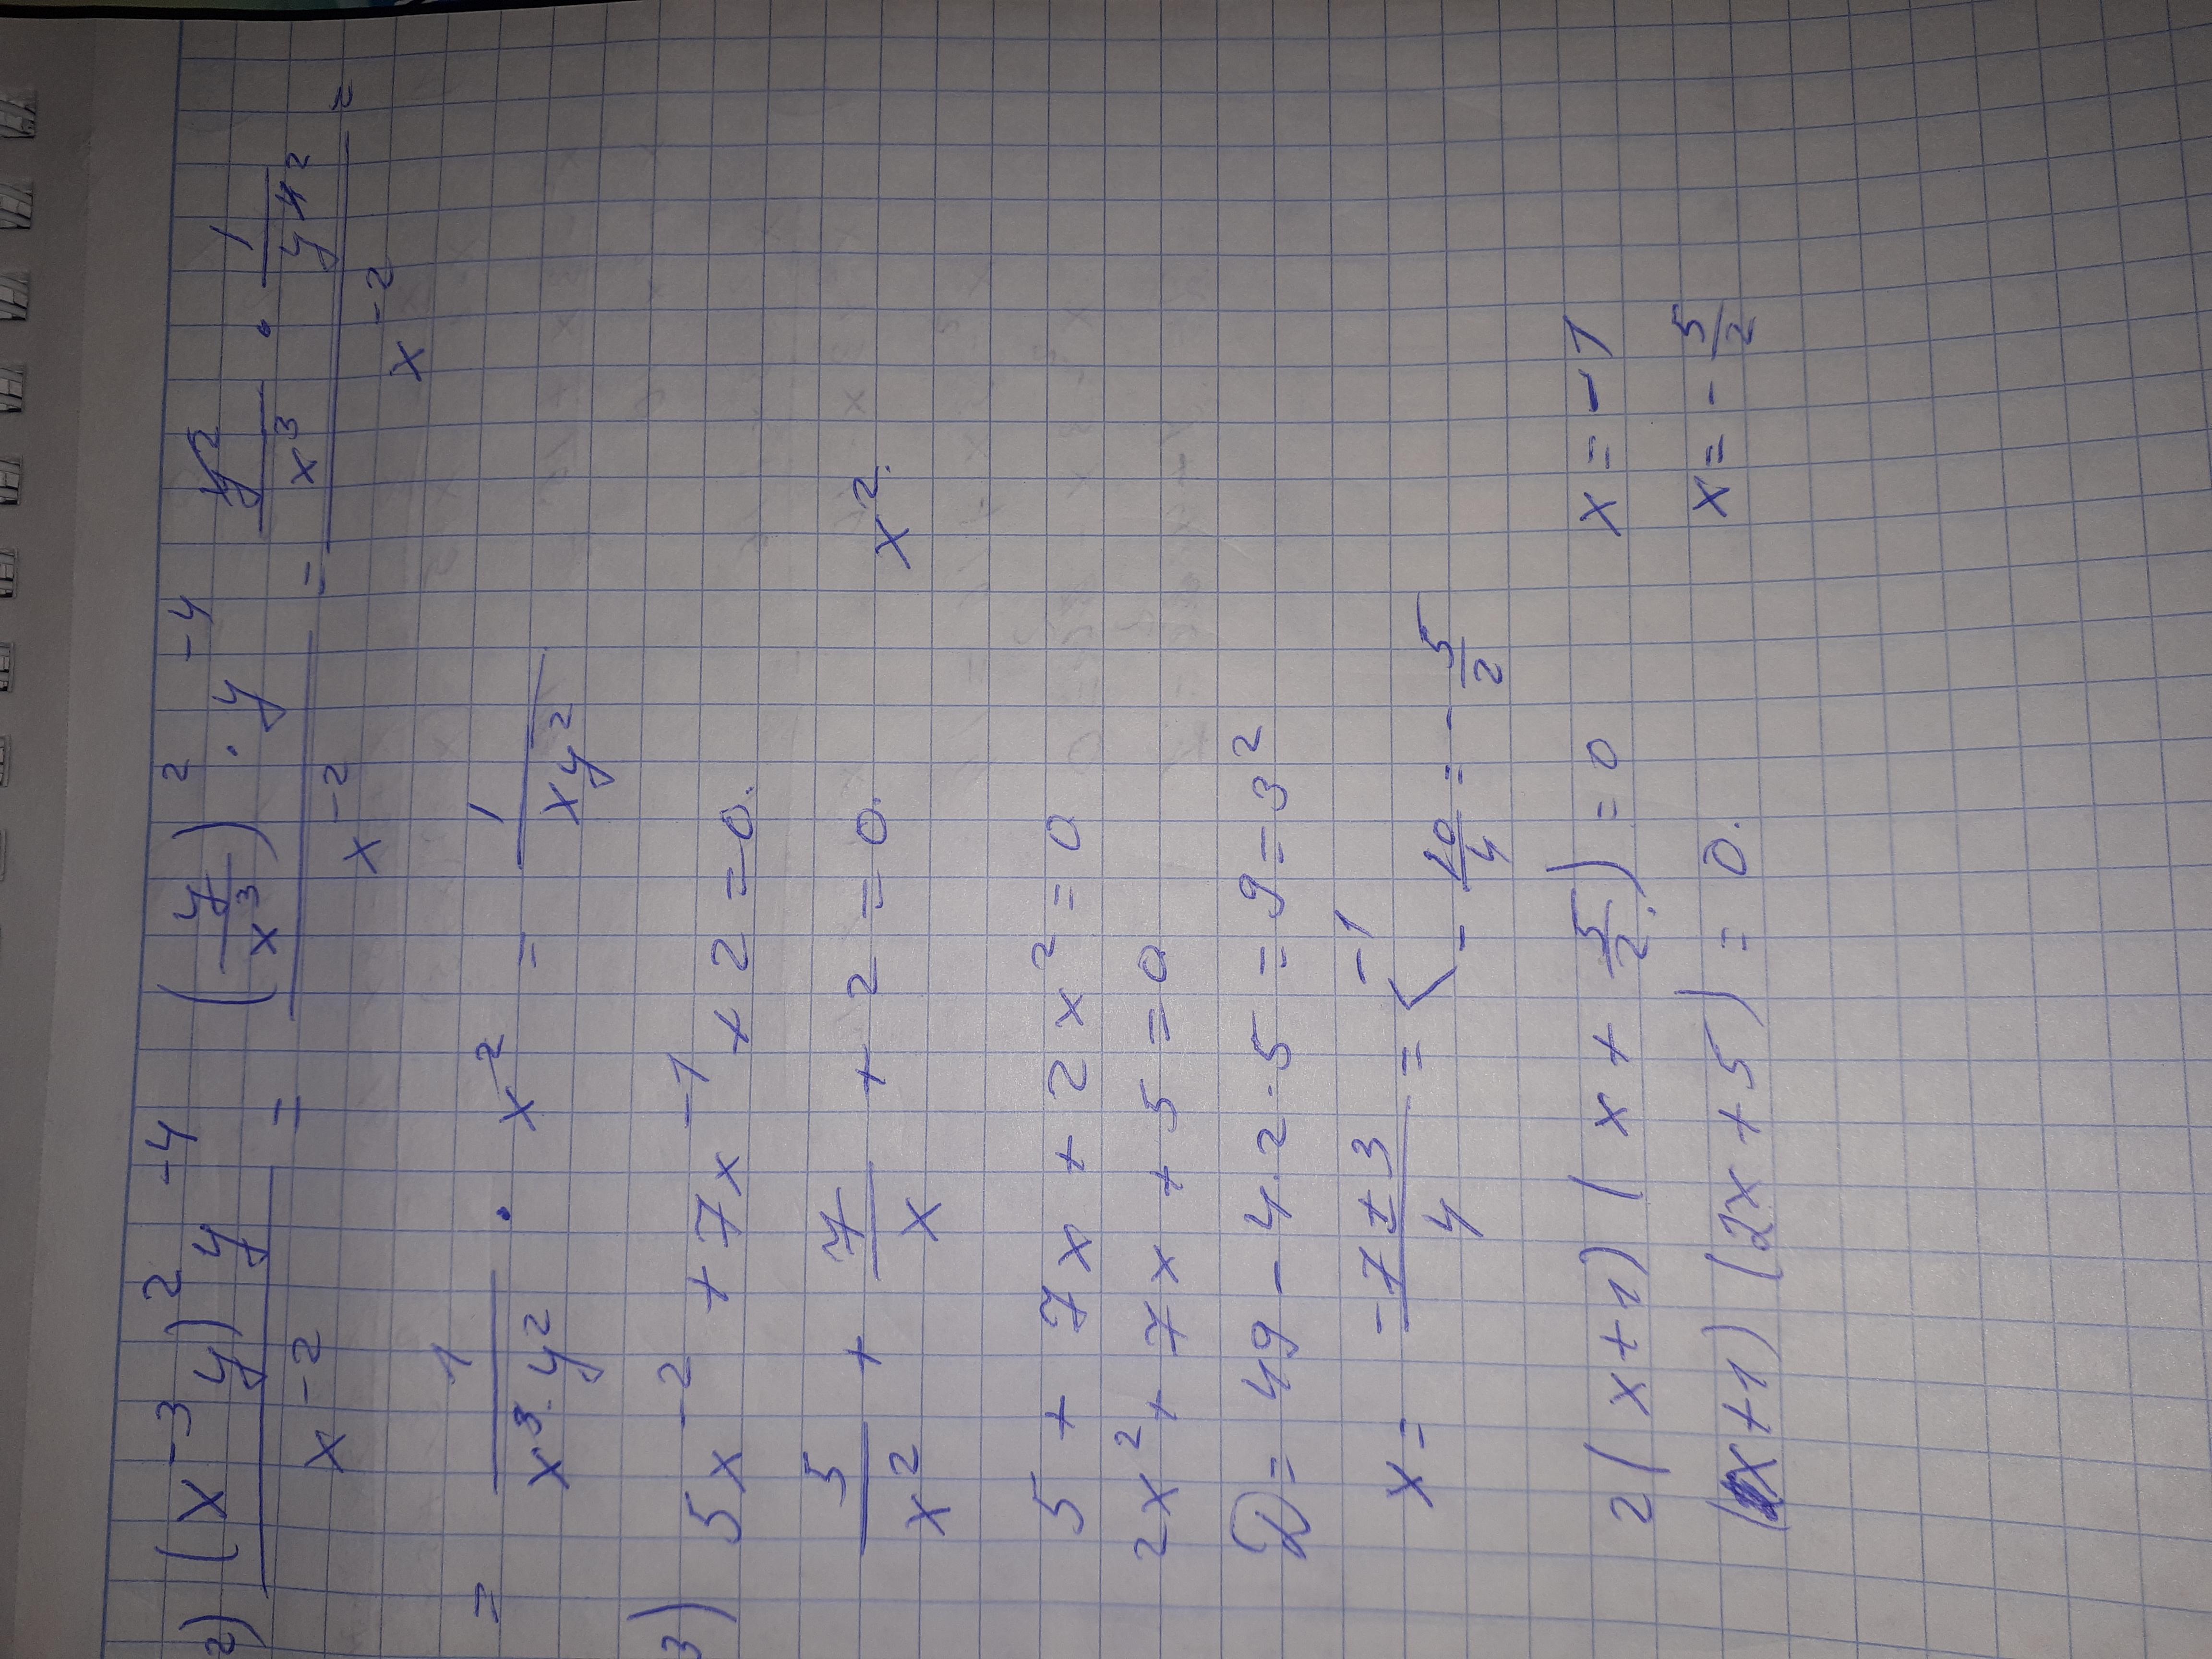 2) (x⁻³y)² y⁻⁴ / x⁻² = (y/x³)² · y⁻⁴ / x⁻² = y²/x³ · 1/y⁴² / x⁻² =
= 1/(x³·y²) · x² = 1/(xy²)
3) 5x⁻² + 7x⁻¹ + 2 = 0.
5/x² + 7/x + 2 = 0. x².
5 + 7x + 2x² = 0
2x² + 7x + 5 = 0
D = 49 - 4·2·5 = 9 = 3²
x = (-7 ± 3)/4 = < -1 ; -10/4 = -5/2
2(x+1)(x + 5/2) = 0 x = -1
(x+1)(2x+5) = 0. x = -5/2